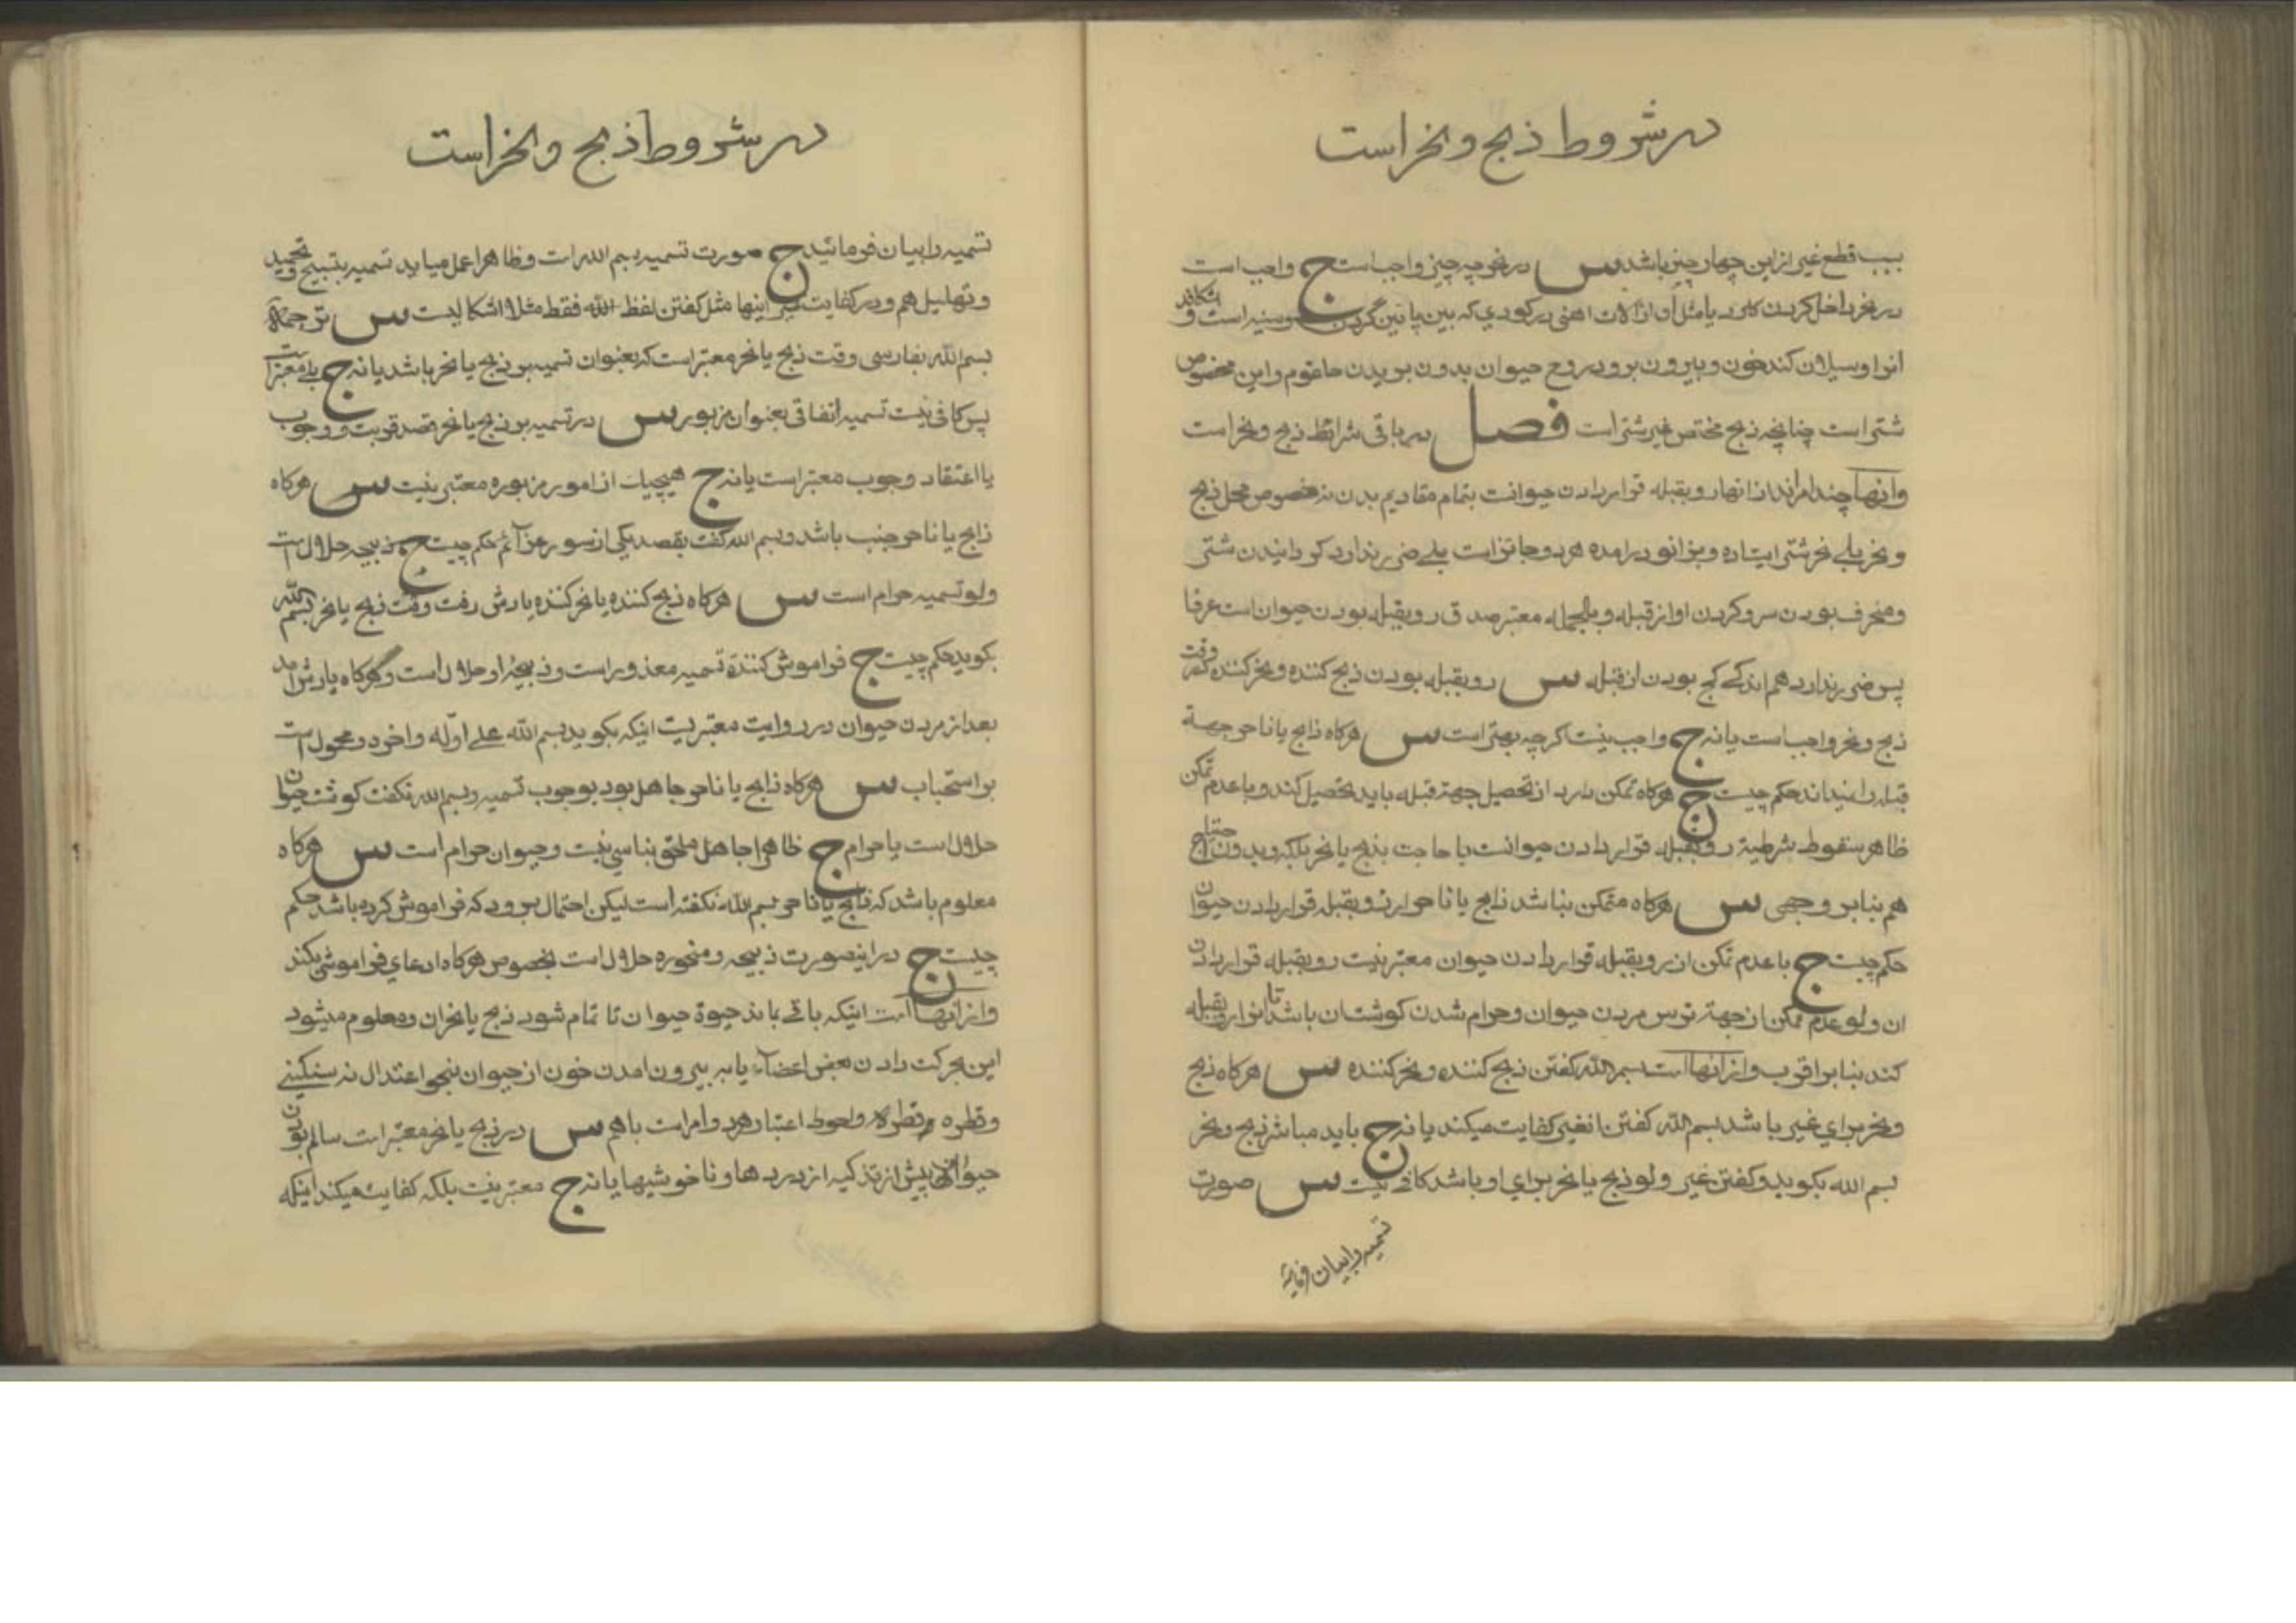 در شروط ذبح و نحر است
سبب قطع غیر از این چهار چیز باشد س در نحر چه چیز واجب است ج واجب است
در نحر داخل کردن کارد یا مثل آن از آلات اهنی در کودی که بین پائین گردن و سینه است و
انرا وسیلان کند خون و بیرون برود روح حیوان بدون بریدن حلقوم و این مخصوص
شتر است چنانچه ذبح مختص غیر شتر است فصل در باقی شرائط ذبح و نحر است
و انها چند امراند از انها رو بقبله قرار دادن حیوانست بتمام مقادیم بدن نه خصوص محل ذبح
و نحر بلی نحر شتر ایستاده و بزانو درامده هر دو جائز است بلی ضرر ندارد کردانیدن شتر
و منحرف بودن سر و کردن او از قبله و بالجمله معتبر صدق رو بقبله بودن حیوان است عرفا
پس ضرر ندارد هم اندکی کج بودن از قبله س رو بقبله بودن ذبح کننده و نحر کننده وقت
ذبح و نحر واجب است یا نه ج واجب نیست کرچه بهتر است س هرکاه ذابح یا ناحر جهة
قبله را نمیداند حکم چیست ج هرکاه تمکن دارد از تحصیل جهة قبله باید تحصیل کند و با عدم تمکن
ظاهر سقوط شرطیة رو بقبله قرار دادن حیوانست با حاجت بذبح یا نحر بلکه و بدون احتیاج
هم بنابر وجهی س هرکاه متمکن نباشد ذابح یا ناحر از رو بقبله قرار دادن حیوان
حکم چیست ج با عدم تمکن از رو بقبله قرار دادن حیوان معتبر نیست رو بقبله قرار دادن
ان ولو عدم تمکن از جهة ترس مردن حیوان و حرام شدن کوشتان باشد تا انرا رو بقبله
کند بنابر اقرب و از انها است بسم الله کفتن ذبح کننده و نحر کننده س هرکاه ذبح
و نحر برای غیر باشد بسم الله کفتن انغیر کفایت میکند یا نه ج باید مباشر ذبح و نحر
بسم الله بکوید و کفتن غیر ولو ذبح یا نحر برای او باشد کافی نیست س صورت
تسمیه را بیان فرمائید
در شروط ذبح و نحر است
تسمیه را بیان فرمائید ج صورت تسمیه بسم الله است و ظاهرا عمل میاید تسمیه بتسبیح و تحمید
و تهلیل هم و در کفایت غیر اینها مثل کفتن لفظ الله فقط مثلا اشکالیست س ترجمهٔ
بسم الله بفارسی وقت ذبح یا نحر معتبر است که بعنوان تسمیه بر ذبح یا نحر باشد یا نه ج بلی معتبر است
پس کافی نیست تسمیه اتفاقی بعنوان مزبور س در تسمیه بر ذبح یا نحر قصد قربت و وجوب
یا اعتقاد وجوب معتبر است یا نه ج هیچیک از امور مزبوره معتبر نیست س هرکاه
ذابح یا ناحر جنب باشد و بسم الله کفت بقصد یکی از سور عزائم حکم چیست ج ذبیحه حلال است
ولو تسمیه حرام است س هرکاه ذبح کننده یا نحر کننده یادش رفت وقت ذبح یا نحر بسم الله
بکوید حکم چیست ج فراموش کنندهٔ تسمیه معذور است و ذبیحهٔ او حلال است و هرکاه یادش امد
بعد از مردن حیوان در روایت معتبریست اینکه بکوید بسم الله علی اوّله و اخره و محمول است
بر استحباب س هرکاه ذابح یا ناحر جاهل بود بوجوب تسمیه و بسم الله نکفت کوشت حیوان
حلال است یا حرام ج ظاهرا جاهل ملحق بناسی نیست و حیوان حرام است س هرکاه
معلوم باشد که ذابح یا ناحر بسم الله نکفته است لیکن احتمال برود که فراموش کرده باشد حکم
چیست ج در اینصورت ذبیحه و منحوره حلال است بخصوص هرکاه ادعای فراموشی بکند
و از انها است اینکه باقی باند حیوة حیوان تا تمام شود ذبح یا نحران و معلوم میشود
این بحرکت دادن بعض اعضاء یا به بیرون امدن خون از حیوان بنحو اعتدال نه سنکینی
و قطره قطره و احوط اعتبار هر دو امر است با هم س در ذبح یا نحر معتبر است سالم بودن
حیوان پیش از تذکیه از دردها و ناخوشیها یا نه ج معتبر نیست بلکه کفایت میکند اینکه